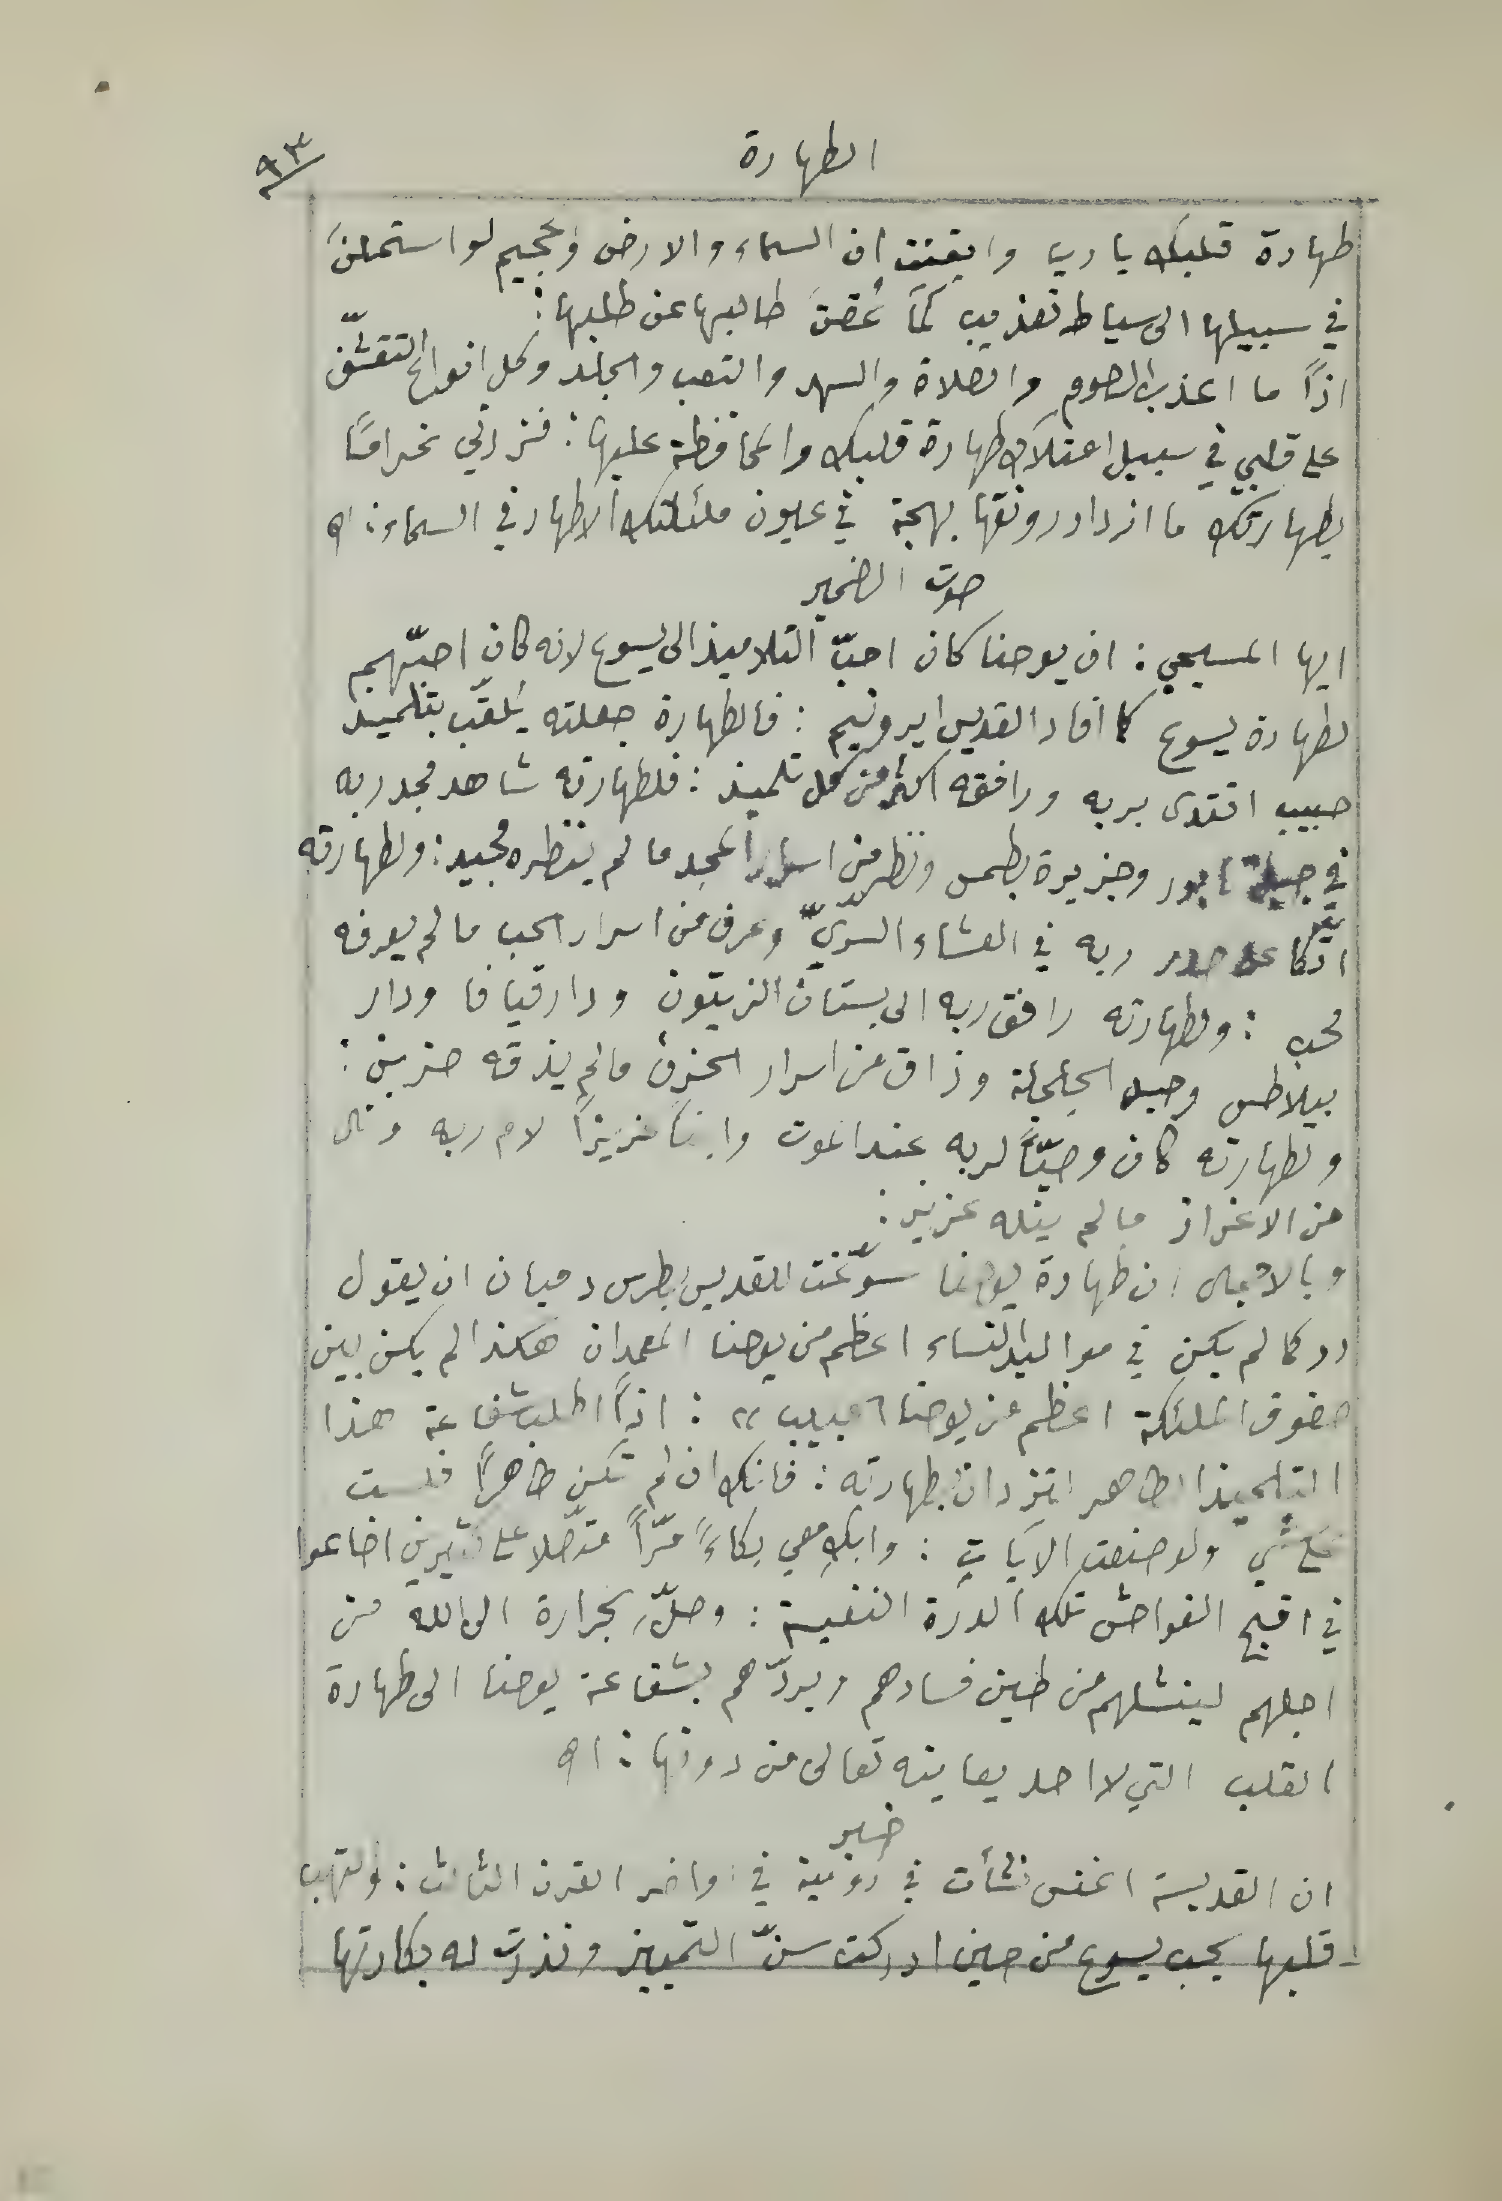 ٩٣
الطهارة
طهارة قلبك يا رب وايقنت ان السماء والارض والجحيم لو استحلن
في سبيلها الى سياط تعذيب لما عُقنَ طالبها عن طلبها :
اذاً ما اعذب الصوم والصلاة والسهر والتعب والجلد وكل انواع التقشّف
على قلبي في سبيل امتلاك طهارة قلبك والمحافظة عليها : فزدني غرامًا
بطهارتك ما ازداد رونقها بهجة في عيون ملئكتك الاطهار في السماء : اه
صوت الضمير
ايها المسيحي : ان يوحنا كان احبّ التلاميذ الى يسوع لانه كان احبّهم
لطهارة يسوع كما افاد القديس ايرونيم : فالطهارة جعلته يُلقّب بتلميذ
حبيب اقتدى بربه ورافقه اكثر من كل تلميذ : فلطهارته شاهد مجد ربه
في جبل تابور وجزيرة بطمس ونظر من اسرار المجد ما لم ينظره مجيد : ولطهارته
اتّكأ على صدر ربه في العشاء السرّيّ وعرف من اسرار الحب ما لم يعرفه
محب : ولطهارته رافق ربه الى بستان الزيتون ودار قيافا ودار
بيلاطس وجبل الجلجلة وذاق من اسرار الحزن ما لم يذقه حزين :
ولطهارته كان وصيّاً لربه عند الموت وابناً عزيزاً لام ربه ونال
من الاعزاز ما لم ينله عزيز :
وبالاجمال ان طهارة يوحنا سوّغت للقديس بطرس دميان ان يقول
,, كما لم يكن في مواليد النساء اعظم من يوحنا المعمدان هكذا لم يكن بين
صفوف الملئكة اعظم من يوحنا الحبيب ,, : اذاً اطلب شفاعة هذا
التلميذ الطاهر لتزدان بطهارته : فانك ان لم تكن طاهراً فلست
على شي ولو صنعت الايات : وابكِ معي بكاءً مرّاً على كثيرين اضاعوا
في اقبح الفواحش تلك الدرة النفيسة : وصلِّ بحرارة الى الله من
اجلهم لينشلهم من طين فسادهم ويردّهم بشفاعة يوحنا الى طهارة
القلب التي لا احد يعاينه تعالى من دونها : اه
خبر
ان القديسة اغنس نشأت في رومية في اواخر القرن الثالث : والتهب
قلبها بحب يسوع من حين ادركت سنّ التمييز ونذرت له بكارتها